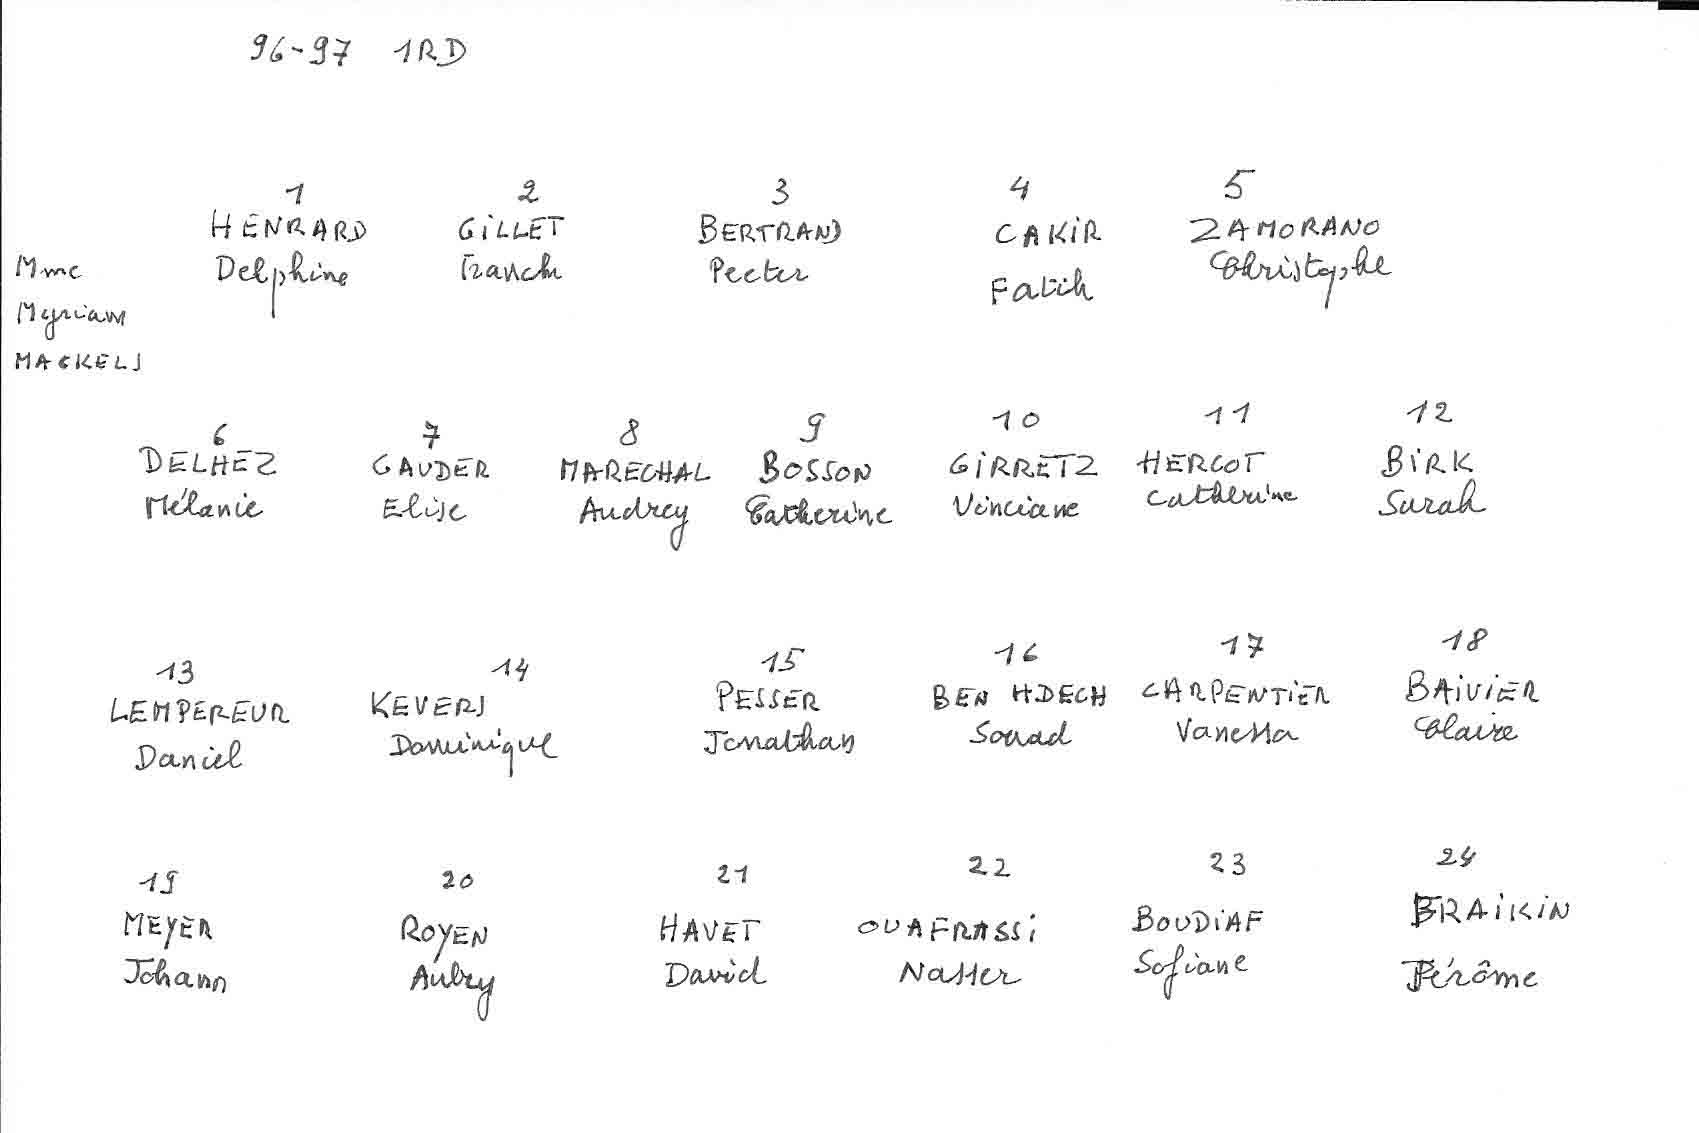 96-97 1RD
1 2 3 4 5
HENRARD GiLLET BERTRAND CAKiR ZAMORANO
Delphine Peeter Fatih Christophe
Mme
Myriam
MACKELS
6 7 8 9 10 11 12
DELHEZ GAUDER MARECHAL BOSSON GiRRETZ HERCOT BiRK
Mélanie Elise Audrey Catherine Vinciane Catherine Sarah
13 14 15 16 17 18
LEMPEREUR KEVERS PESSER BEN HDECH CARPENTiER BAiViER
Daniel Dominique Jonathan Souad Vanessa Claire
19 20 21 22 23 24
MEYER ROYEN HAVET OUAFRASSi BOUDiAF BRAiKiN
Johann Aubry David Nasser Sofiane Jérôme